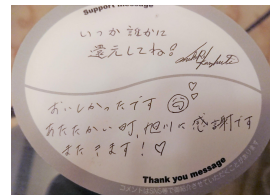 Support message
いつか誰かに
還元してね!
おいしかったです
あたたかい町、旭川に感謝です
またきます!♡
Thank you message